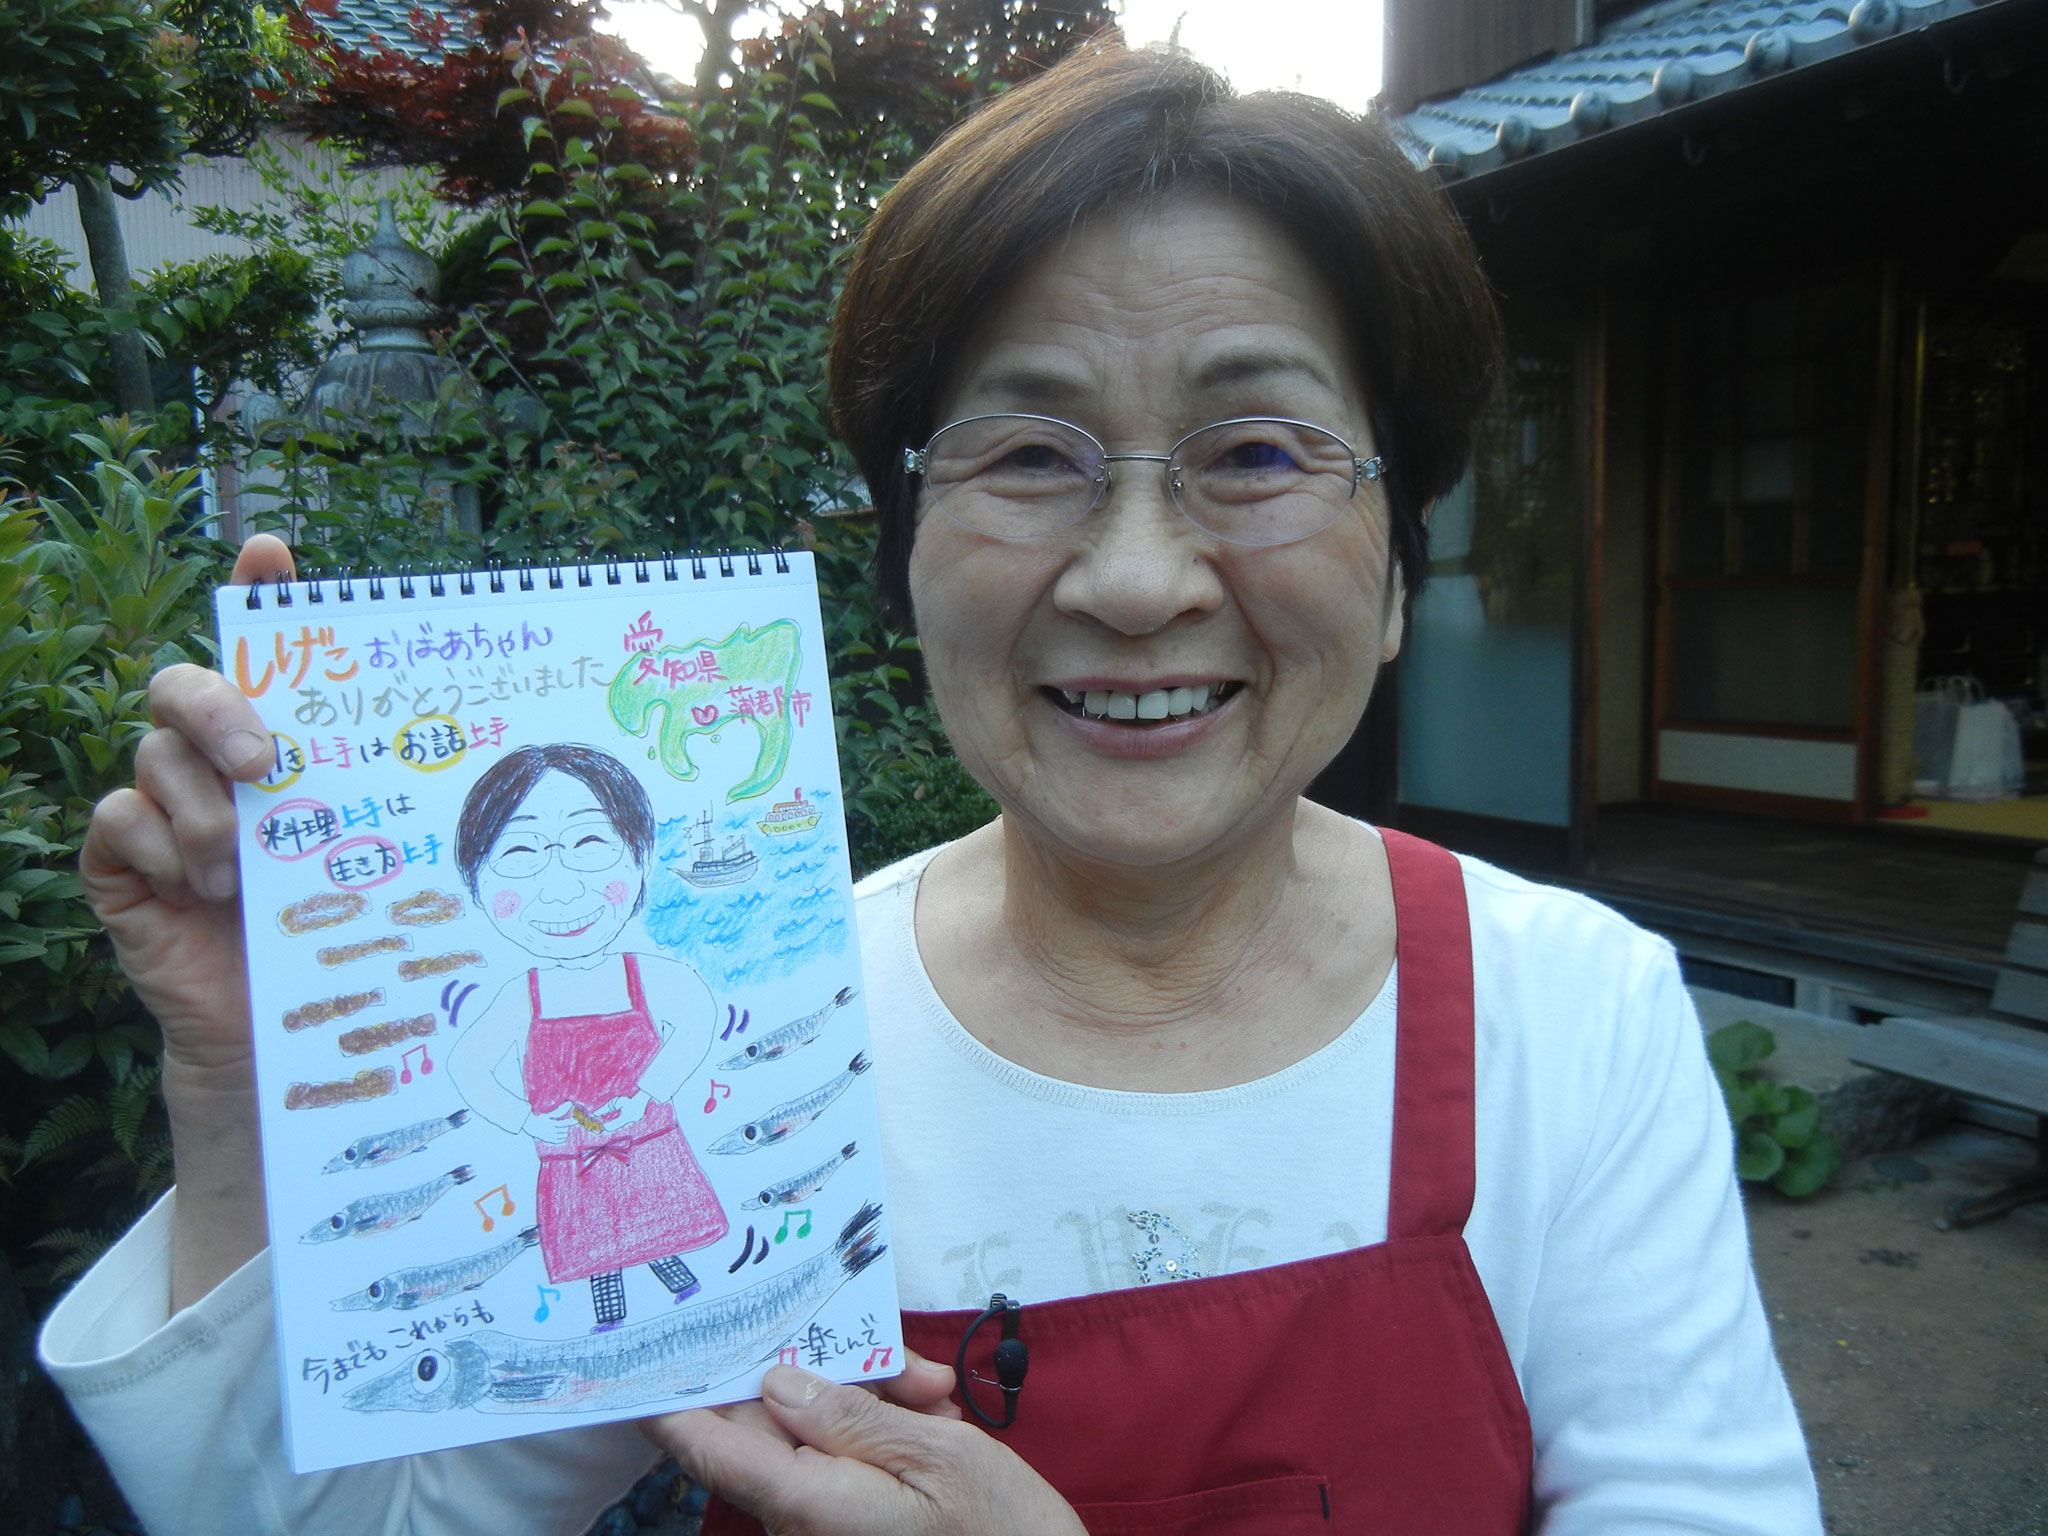 しげこおばあちゃん
ありがとうございました
愛知県
蒲郡市
き上手はお話上手
料理上手は
生き方上手
今までもこれからも
楽しんで